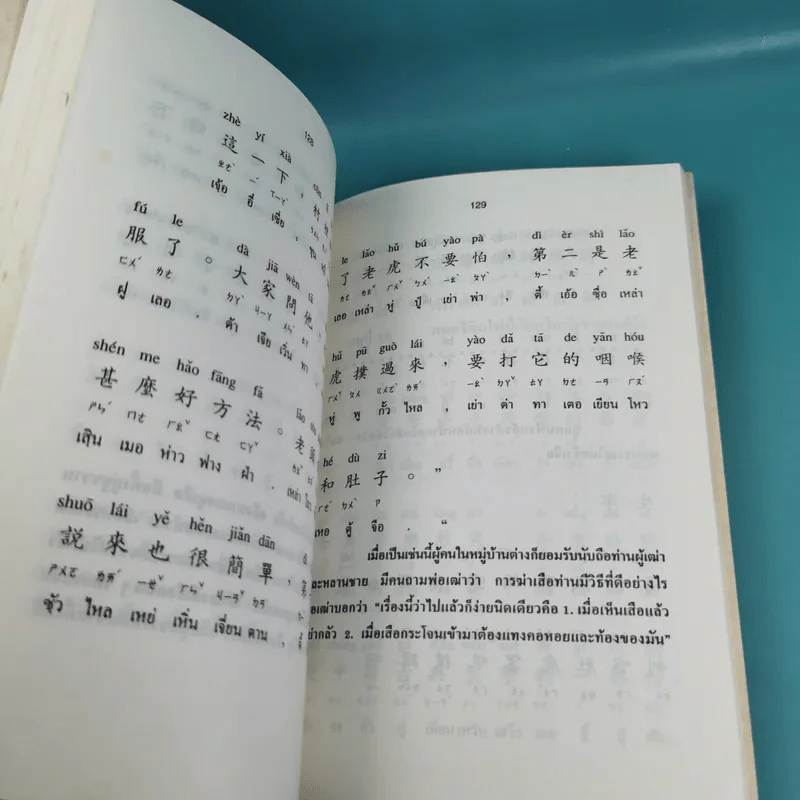 128
zhè yí xià
這一下，村
ㄓㄜˋ ㄧˊ ㄒㄧㄚˋ
เจ้อ อี๋ เซี่ย,
fú le dà jiā wèn tā
服了。大家問他，
ㄈㄨˊ ㄌㄜ ㄉㄚˋ ㄐㄧㄚ ㄨㄣˋ ㄊㄚ
ฝู เลอ . ต้า เจีย เวิ่น ทา
shén me hǎo fāng fǎ lǎo
甚麼好方法。老
ㄕㄣˊ ㄇㄜ ㄏㄠˇ ㄈㄤ ㄈㄚˇ
เสิน เมอ ห่าว ฟาง ฝ่า . เหล่า
shuō lái yě hěn jiǎn dān
説來也很簡單，
ㄕㄨㄛ ㄌㄞˊ ㄧㄝˇ ㄏㄣˇ ㄐㄧㄢˇ ㄉㄢ
ซัว ไหล เหย่ เหิ่น เจี่ยน ตาน ,
129
le lǎo hǔ bú yào pà dì èr shì lǎo
了老虎不要怕，第二是老
ㄌㄜ ㄌㄠˇ ㄏㄨˇ ㄅㄨˊ ㄧㄠˋ ㄆㄚˋ ㄉㄧˋ ㄦˋ ㄕˋ ㄌㄠˇ
เลอ เหล่า หู่ ปู๋ เย่า พ่า , ตี้ เอ้อ ซื่อ เหล่า
hǔ pū guò lái yào dǎ tā de yān hóu
虎撲過來，要打它的咽喉
ㄏㄨˇ ㄆㄨ ㄍㄨㄛˋ ㄌㄞˊ ㄧㄠˋ ㄉㄚˇ ㄊㄚ ㄉㄜ ㄧㄢ ㄏㄡˊ
หู่ พู กั้ว ไหล, เย่า ต่า ทา เตอ เยียน โหว
hé dù zi
和肚子。”
ㄏㄜˊ ㄉㄨˋ ㄗ
เหอ ตู้ จือ . “
เมื่อเป็นเช่นนี้ผู้คนในหมู่บ้านต่างก็ยอมรับนับถือท่านผู้เฒ่า
และหลานชาย มีคนถามพ่อเฒ่าว่า การฆ่าเสือท่านมีวิธีที่ดีอย่างไร
พ่อเฒ่าบอกว่า “เรื่องนี้ว่าไปแล้วก็ง่ายนิดเดียวคือ 1. เมื่อเห็นเสือแล้ว
อย่ากลัว 2. เมื่อเสือกระโจนเข้ามาต้องแทงคอหอยและท้องของมัน”